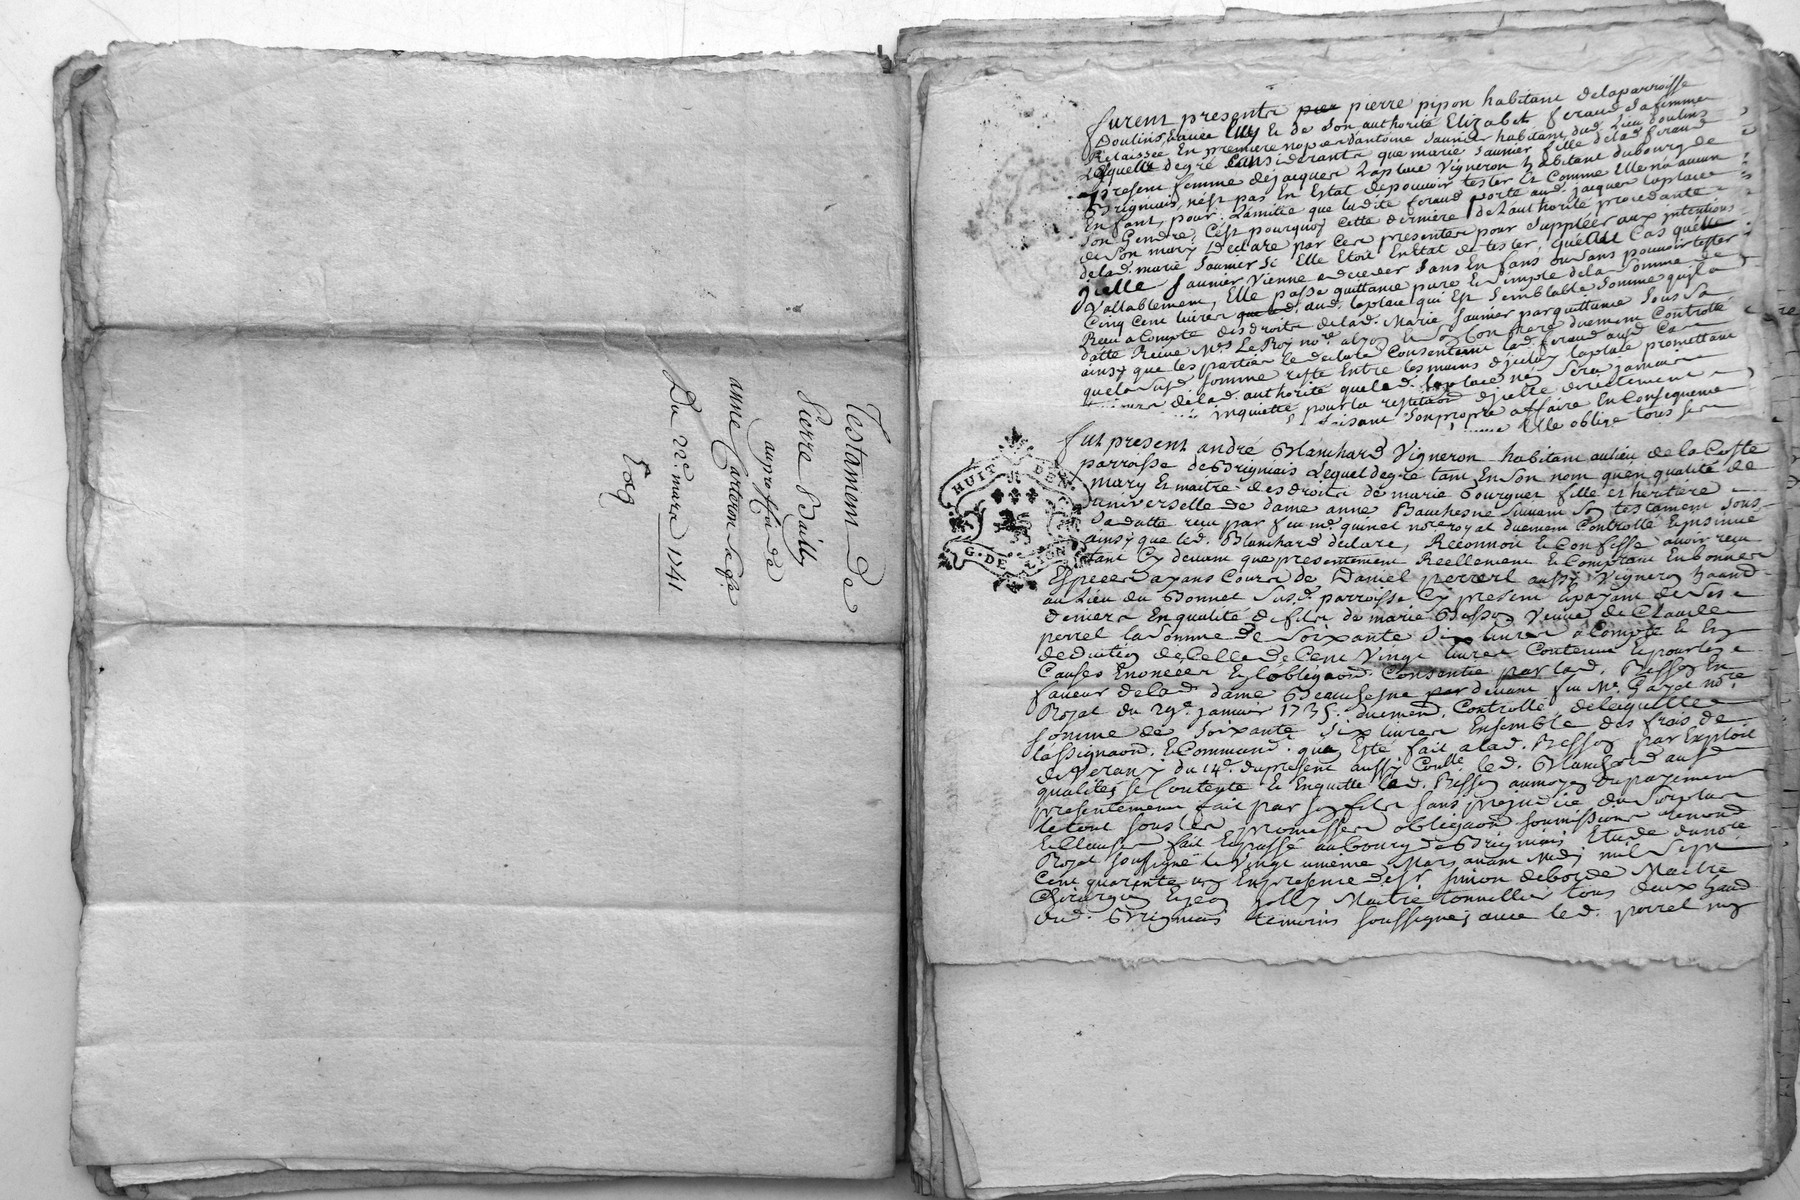 Testament de
Pierre Bailly
au proffit de
anne Carteron sa fe.
Du 22e. mars 1741
furent presents pierre pipon habitant de la parroisse
Doulins, & avec luy & de son authorité Elizabet feraud sa femme
Relaissée En premiere nopces d'antoine saunier habitant dud. Lieu doulins
Laquelle de gré Considerants que marie saunier fille de lad. feraud
a present femme de jacques Laplace Vigneron habitant du bourg de
Brignais, n'est pas En Estat de pouvoir tester Et Comme Elle n'a aucun
Enfant, pour L'amitié que ladite feraud porte aud. jacques laplace
son Gendre, C'est pourquoy cette derniere de L'authorité procedante
de son mary Declare par Ces presentes pour suppléer aux jntentions
de lad. marie saunier si Elle Etoit En Etat de tester, qu'au Cas qu'elle
jcelle saunier Vienne a deceder sans Enfans ou sans pouvoir tester
Vallablement, Elle passe quittance pure & simple de la somme de
Cinq Cent livres aud. laplace qui Est semblable somme qu'il a
Receu a Compte des droits de lad. Marie saunier par quittance sous sa
datte Receue Me. Le Roy nore. duement Controllé
ainsy que les parties le declare Consentant lad. feraud aud. Cas
que la susd. somme reste Entre les mains djceluy laplace promettant
de lad. authorité que led. laplace n'en sera jamais
inquietté pour la restitaon d'jcelle directement
faisant son propre affaire En Consequence
Elle oblige tous ses
HUIT DEN.
G. DE LION
fut present andré Blanchard Vigneron habitant au lieu de la Coste
parroisse de Brignais Lequel de gré tant En son nom qu'en qualité de
mary Et maitre des droits de marie Bourguet fille et heritiere
universelle de dame anne Bauchesne suivant son testament sous
sa datte receu par feu me. quinet nore. royal duement Controllé Et jnsinué
ainsy que led. Blanchard declare, Reconnoit & Confesse avoir receu
tant Cy devant que presentement Reellement & Comptant En bonnes
Especes ayans Cours de Daniel perrel aussy Vigneron habitant
au Lieu du Bonnet susd. parroisse Cy present & payant de ses
deniers En qualité de fils de marie Besson Veuve de Claude
perrel la somme de soixante six livres a Compte & En
deduction de Celle de Cent Vingt livres Contenue & pour les
Causes Enoncées En l'obligaon. Consentie par lad. Besson En
faveur de lad. dame Beauchesne par devant feu Me. Gayot nore.
Royal du 29e. janvier 1735. duement Controllé, de laquelle
somme de soixante six livres Ensemble des frais de
l'assignaon. & Command. que Este fait a lad. Besson par Exploit
de Verany du 14e. du present aussy Conllé. led. Blanchard aud.
qualités se Contente & En quitte lad. Besson au moyen du payement
presentement fait par son fils sans prejudice du surplus
le tout sous les promesses obligaons soumissions renond
& Clauses fait & passé au bourg de Brignais Etude du nore.
Royal soussigné le Vingt unieme Mars avant Midy mil sept
Cent quarante un En presence de sr. simon deborde Maitre
Chirurgien & jean jolly Maitre tonnellier tous deux haud
dud. Brignais temoins soussignés avec led. perrel non